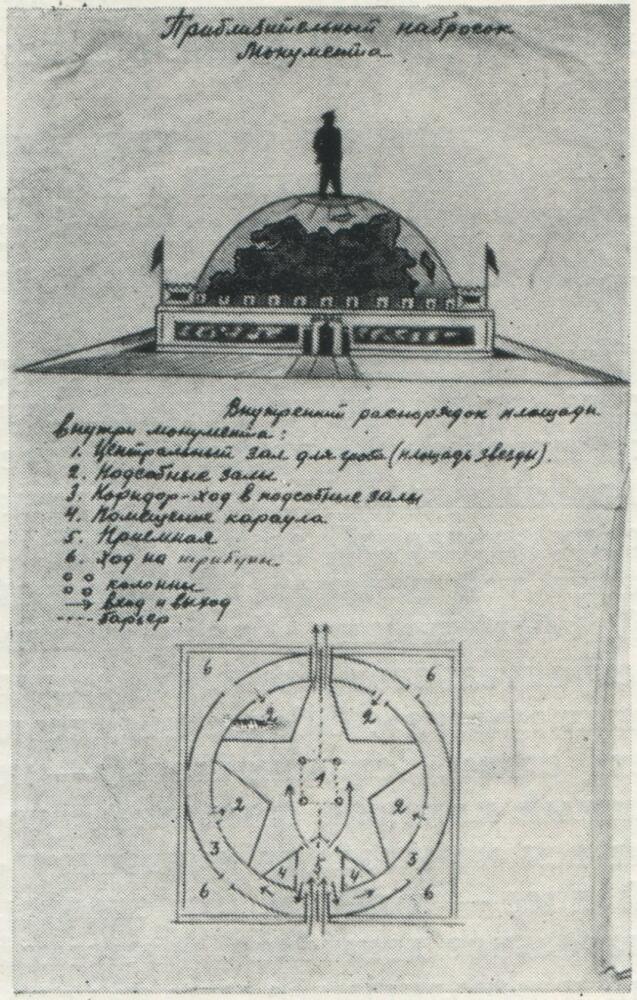 Приблизительный набросок
Монумента
Внутренний распорядок площади
внутри монумента:
1. Центральный зал для гроба (площадь звезды).
2. Подсобные залы
3. Коридор-ход в подсобные залы
4. Помещение караула
5. Приемная
6. Ход на трибуны.
колонны
вход и выход
барьер
6 6
2 2
1
2 2
3 3
4 5 4
6 6